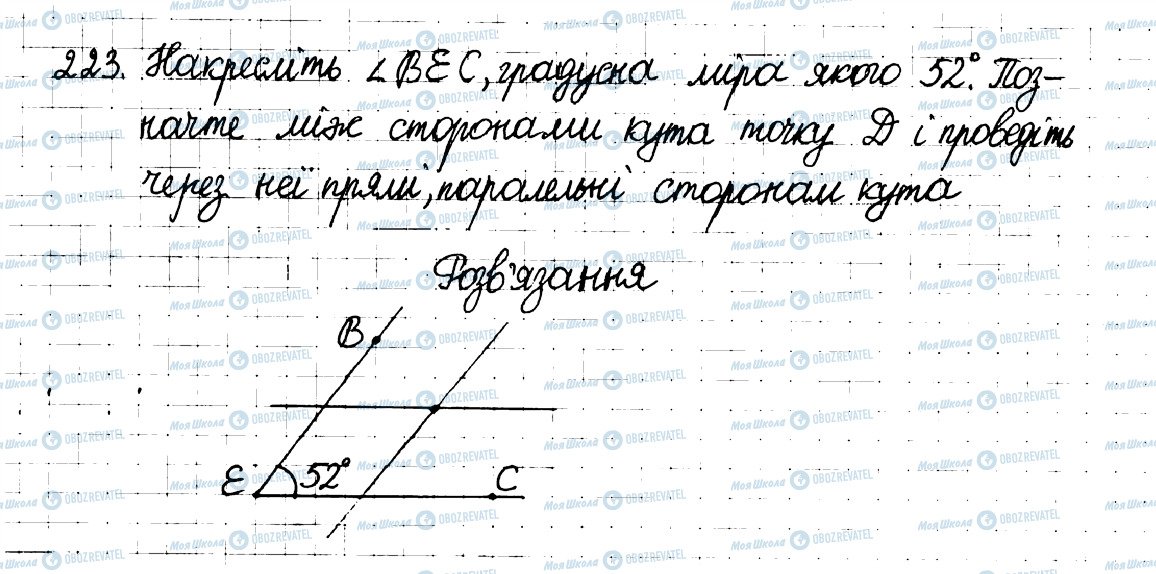 223. Накресліть ∠BEC, градусна міра якого 52°. Поз-
начте між сторонами кута точку D і проведіть
через неї прямі, паралельні сторонам кута
Розв'язання
B
E 52° C
Моя Школа OBOZREVATEL